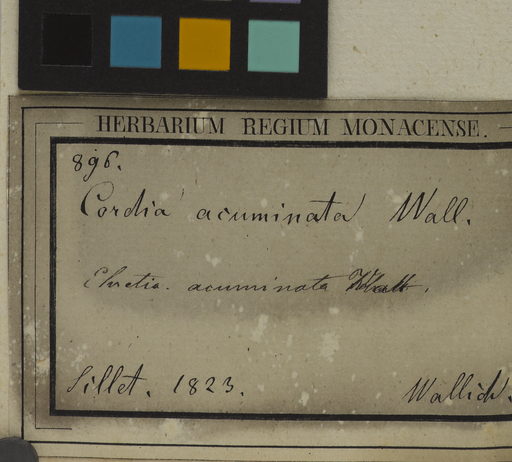 HERBARIUM REGIUM MONACENSE.
896.
Cordia acuminata Wall.
Ehretia. acuminata Wall.
Sillet. 1823. Wallich.